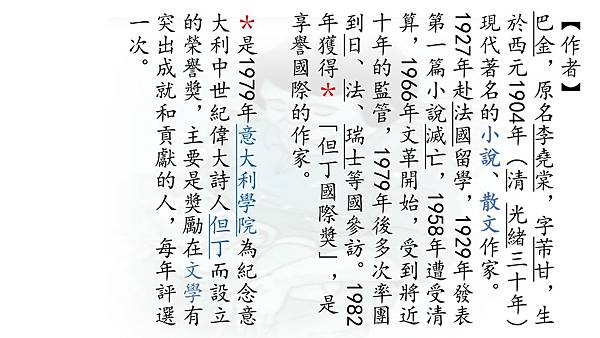 【作者】
巴金，原名李堯棠，字芾甘，生
於西元1904年（清 光緒三十年）
現代著名的小說、散文作家。
1927年赴法國留學，1929年發表
第一篇小說滅亡，1958年遭受清
算，1966年文革開始，受到將近
十年的監管，1979年後多次率團
到日、法、瑞士等國參訪。1982
年獲得＊「但丁國際獎」，是
享譽國際的作家。
＊是1979年意大利學院為紀念意
大利中世紀偉大詩人但丁而設立
的榮譽獎，主要是獎勵在文學有
突出成就和貢獻的人，每年評選
一次。